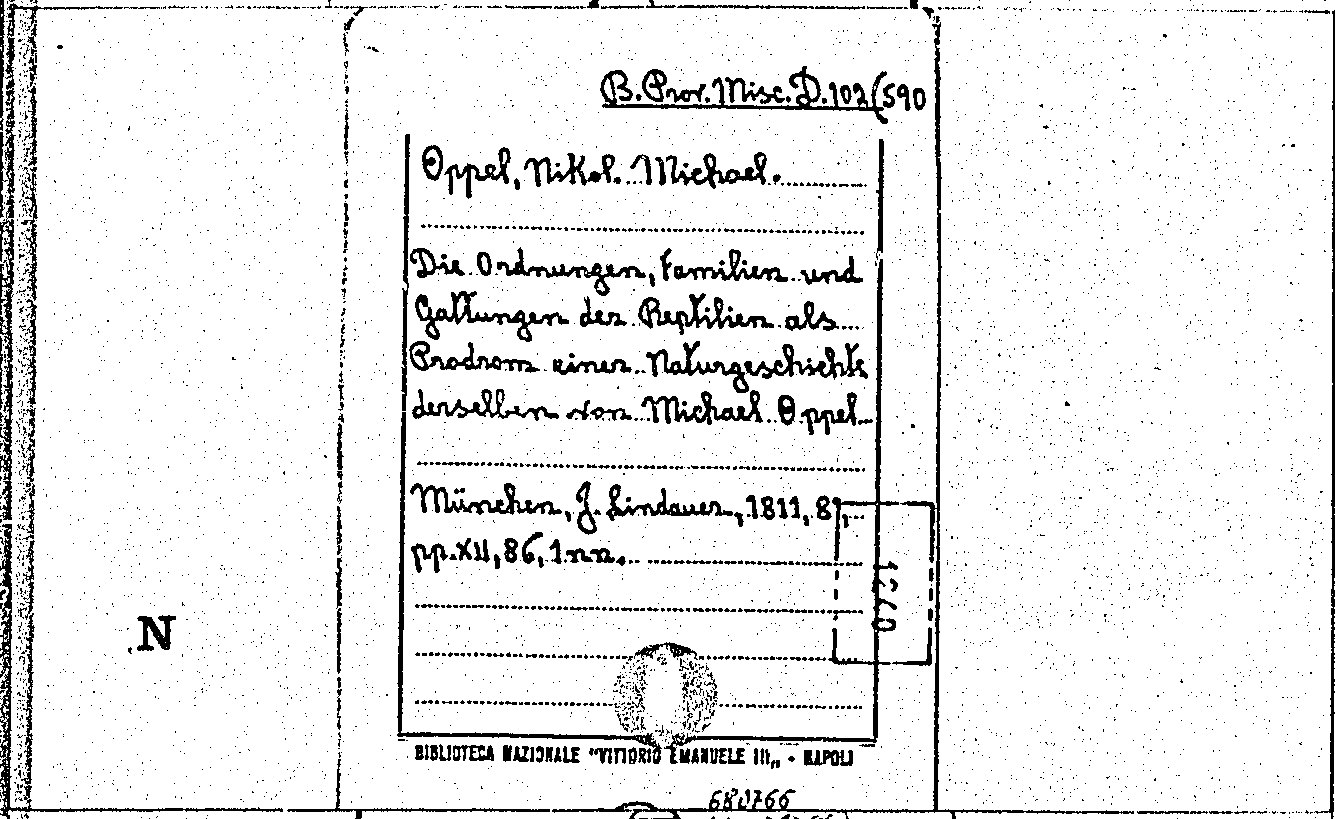 B. Prov. Misc. D. 102 (590
Oppel, Nikol. Michael.
Die Ordnungen, Familien und
Gattungen der Reptilien als
Prodrom einer Naturgeschichte
derselben von Michael Oppel
München, J. Lindauer, 1811, 8°,
pp. XII, 86, 1 nn.
N
BIBLIOTECA NAZIONALE "VITTORIO EMANUELE III„ - NAPOLI
680766